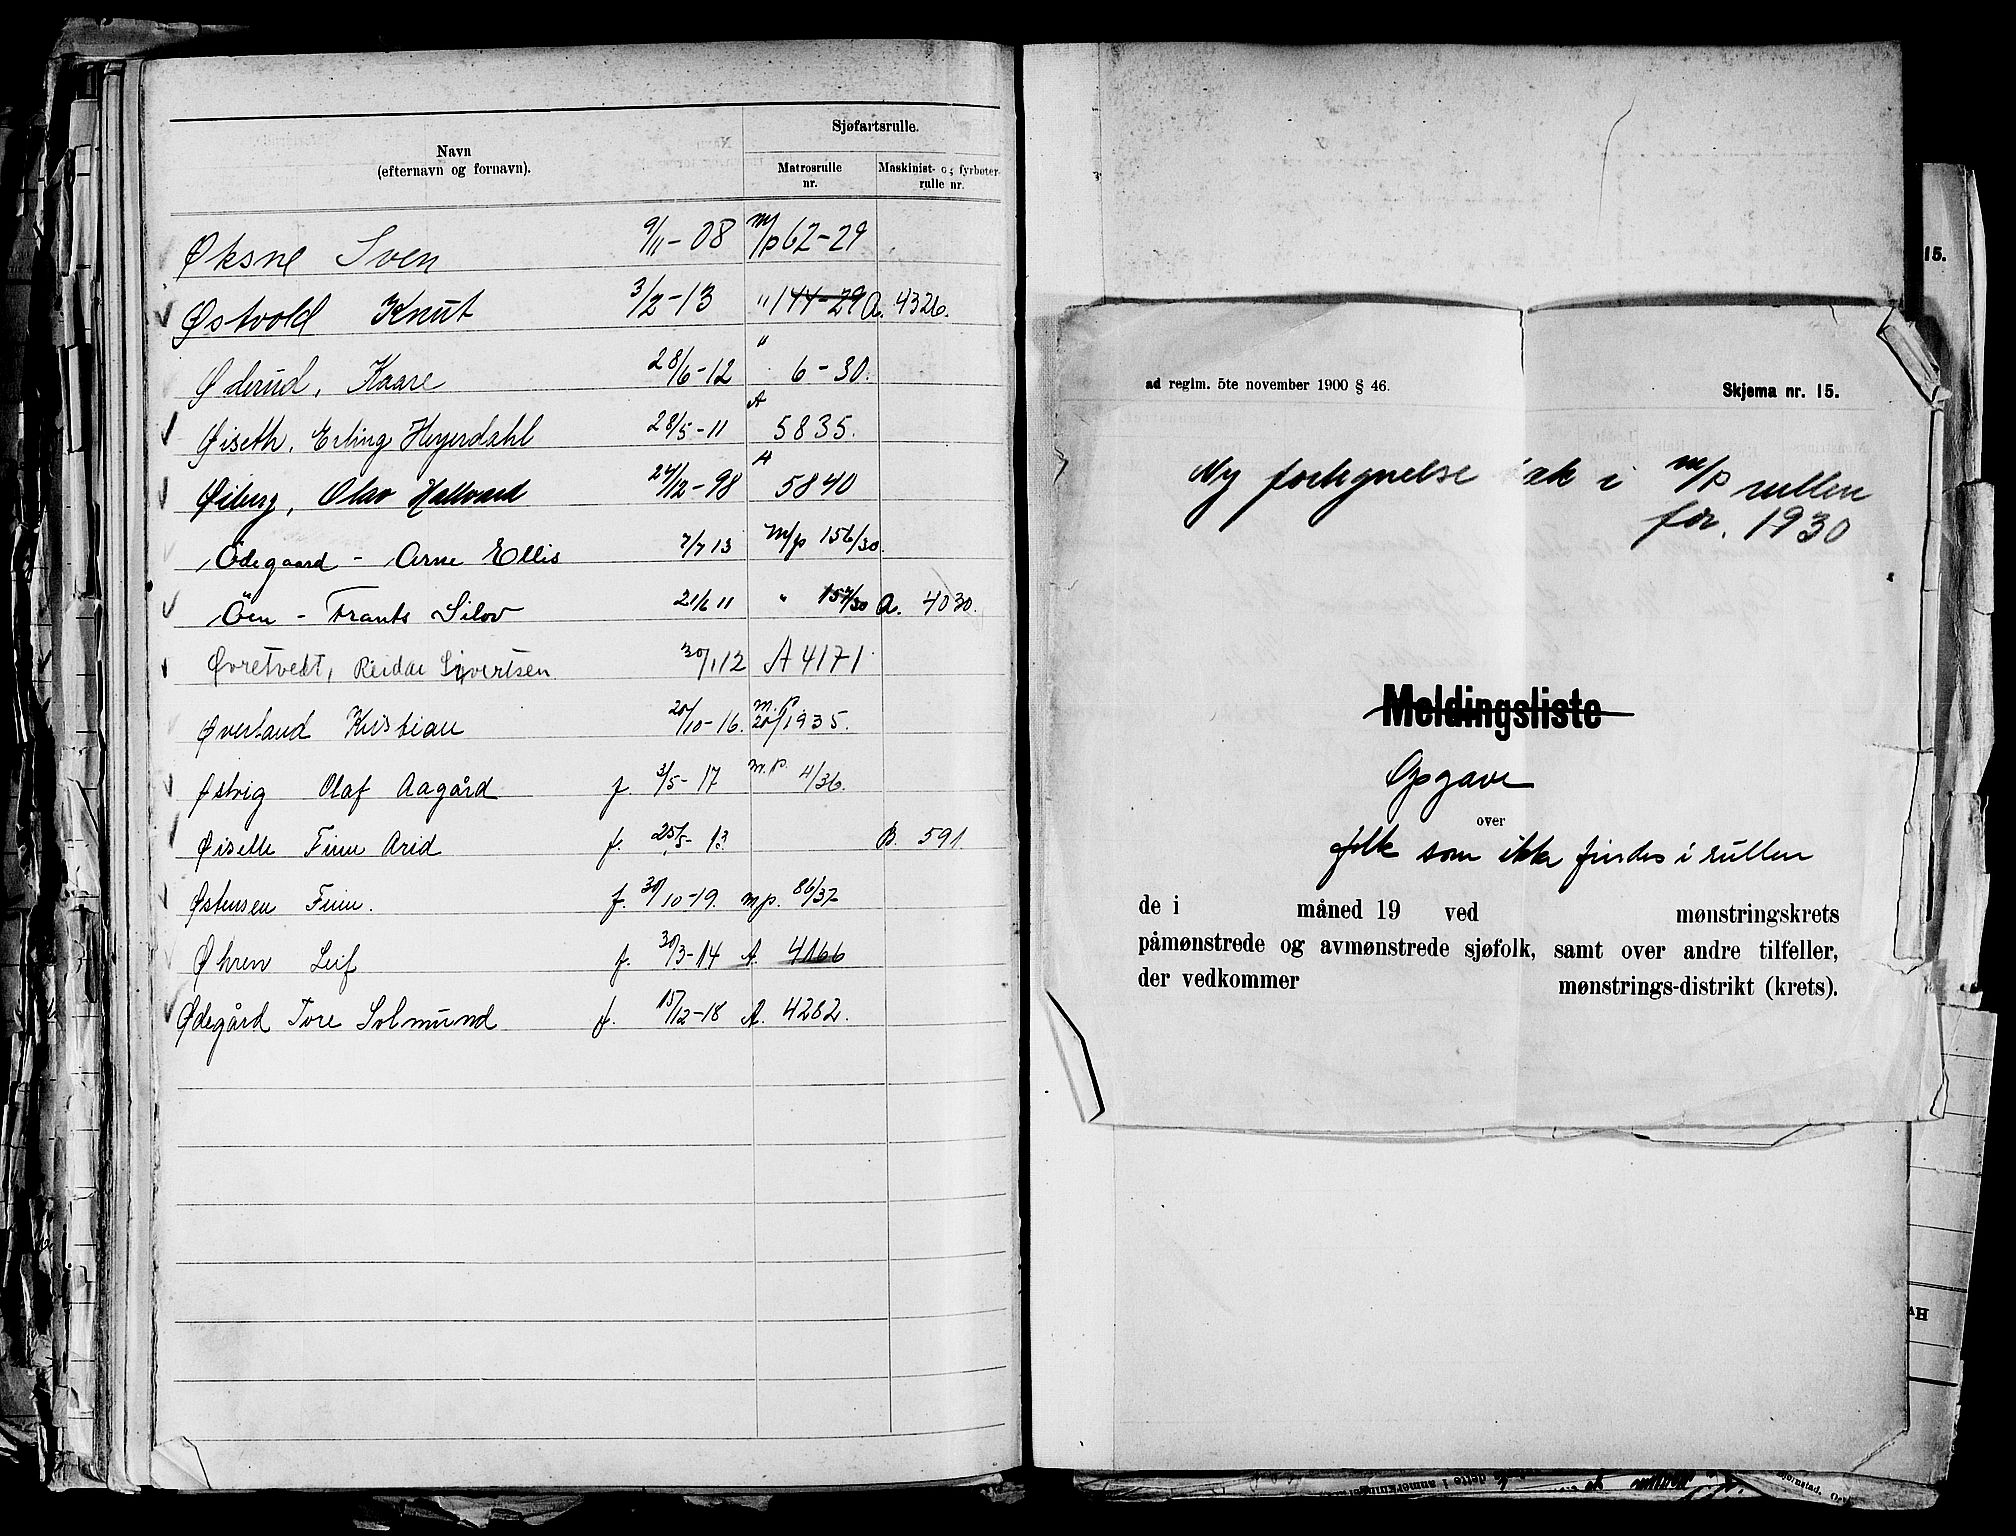 Navn
(efternavn og fornavn).
Sjøfartsrulle.
Matrosrulle nr.
Maskinist- og fyrbøter- rulle nr.
Øksne Sven 9/11-08 m/p 62-29
Østvold Knut 3/2-13 " 144-29 A. 4326.
Øderud, Kaare 28/6-12 " 6-30.
Øiseth, Erling Heyerdahl 28/5-11 A 5835.
Øiberg, Olav Hallvard 24/12-98 A 5840
Ödegaard - Arne Ellis 7/7 13 m/p 156/30.
Öen - Frants Silov 21/6 11 " 157/30 A. 4030.
Øvretvedt, Reidar Sivertsen 30/1 12 A 4171
Øverland Kristian 20/10-16. m.p. 20/1935.
Østvig Olaf Aagård f. 3/5-17 m.p. 4/36.
Øiseth Finn Arid f. 25/5-13 B. 591
Østensen Finn. f. 30/10-19. mp. 86/37
Øhren Leif f. 30/3-14 A. 4166
Ødegård Tore Solmund f. 15/12-18 A. 4282.
ad reglm. 5te november 1900 § 46.
Skjema nr. 15.
Ny fortegnelse i m/p rullen
for. 1930
Meldingsliste
Opgave
over
folk som ikke findes i rullen
de i måned 19 ved mønstringskrets
påmønstrede og avmønstrede sjøfolk, samt over andre tilfeller,
der vedkommer mønstrings-distrikt (krets).
15.